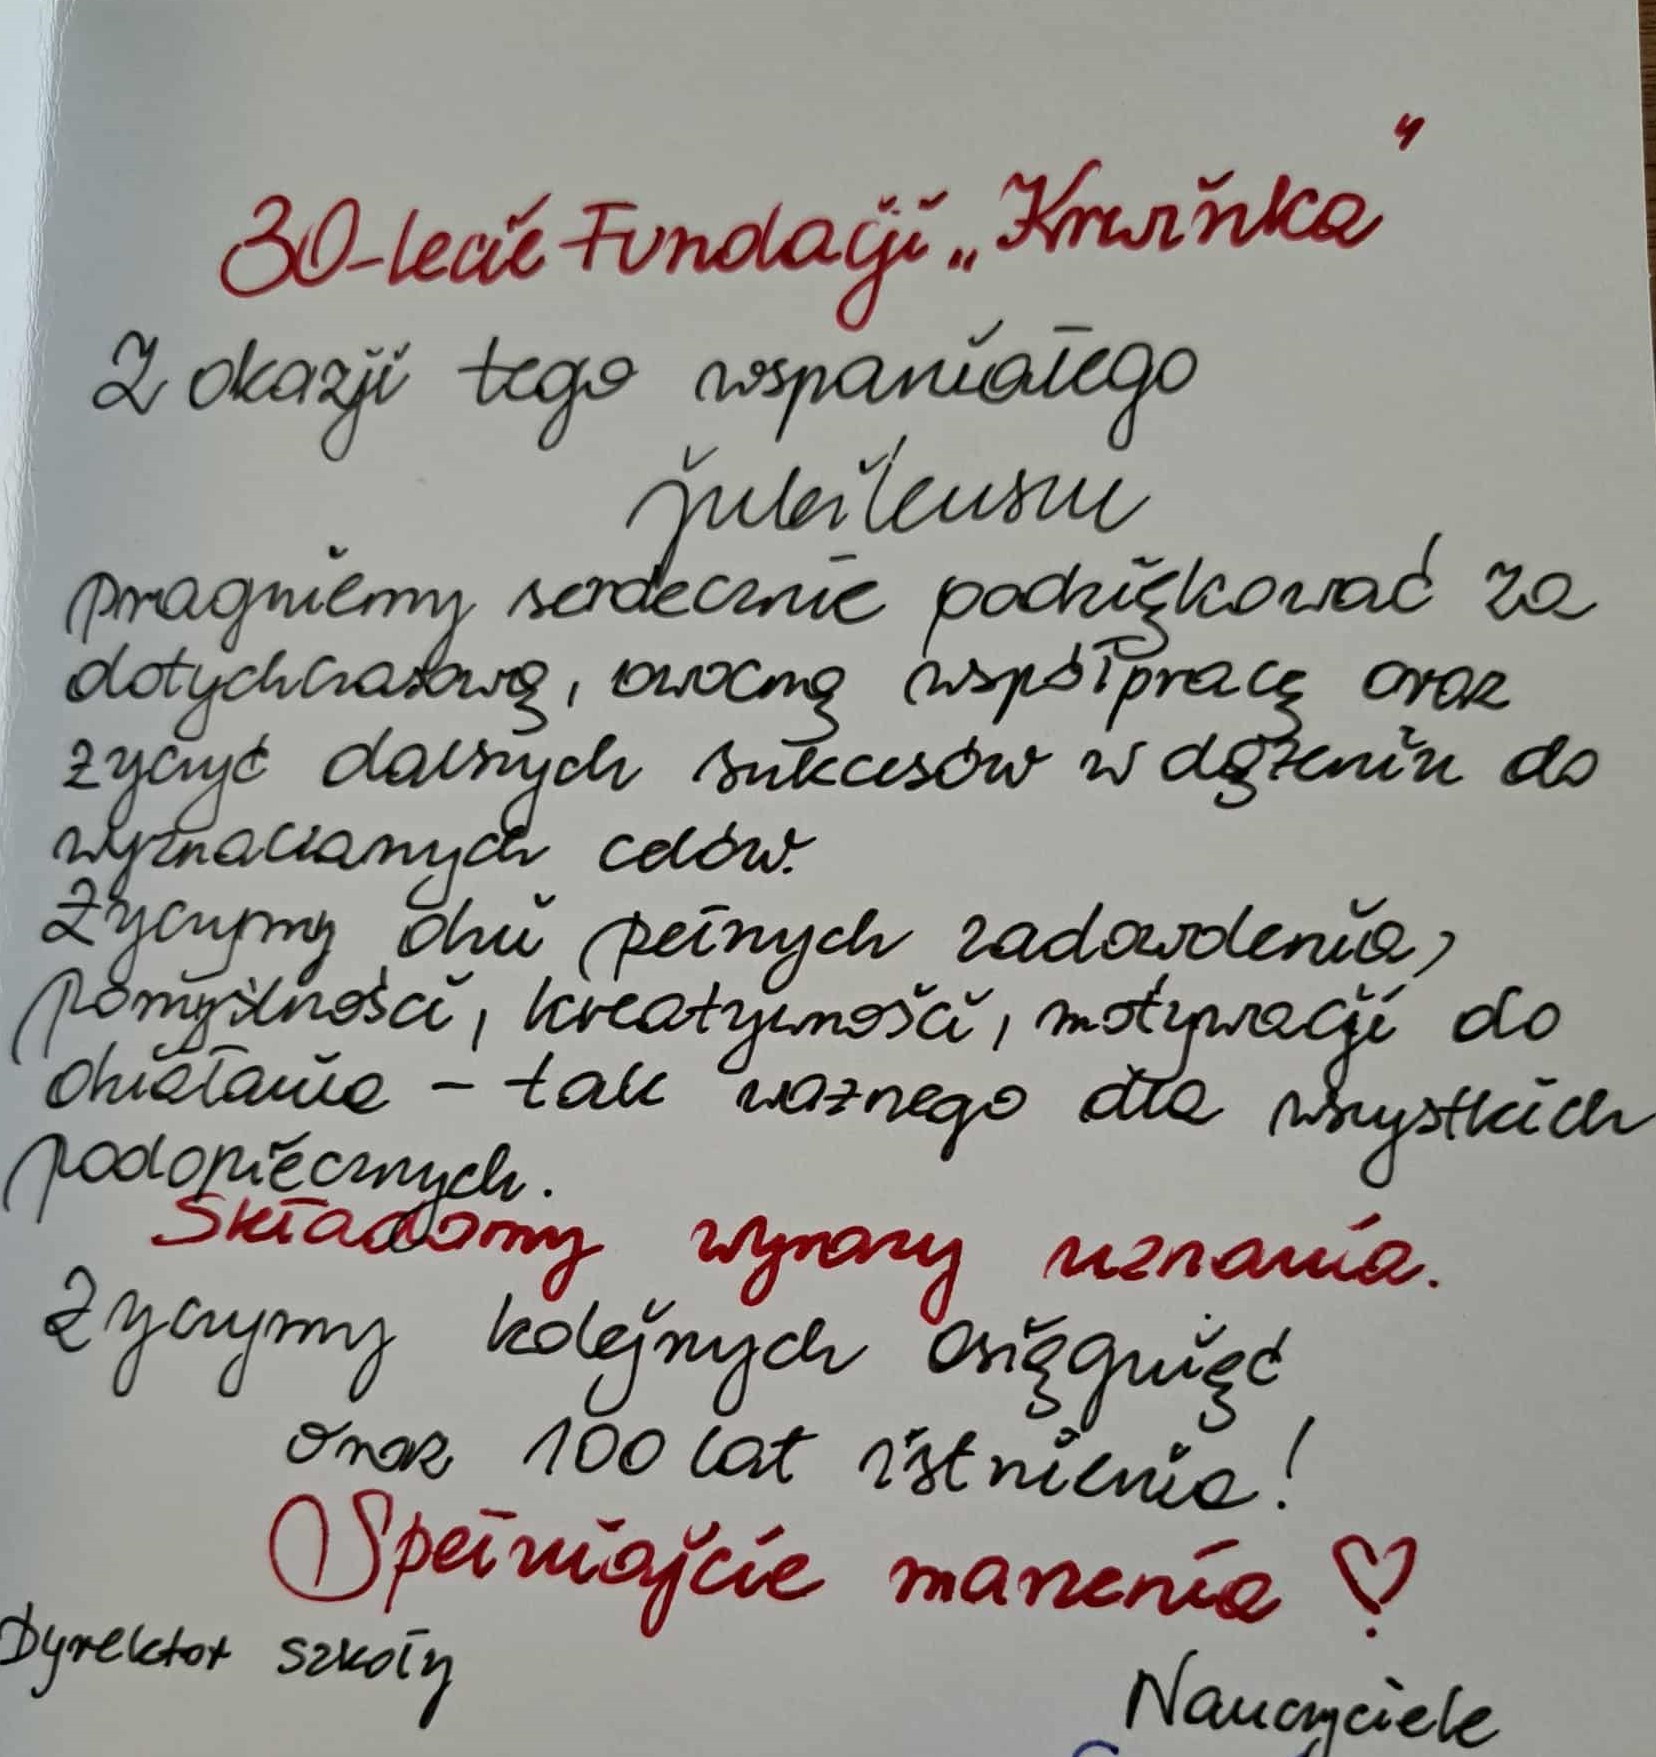 30-lecie Fundacji „Kruszynka”
Z okazji tego wspaniałego
jubileuszu
pragniemy serdecznie podziękować za
dotychczasową, owocną współpracę oraz
życzyć dalszych sukcesów w dążeniu do
wyznaczanych celów.
Życzymy dni pełnych zadowolenia,
pomyślności, kreatywności, motywacji do
działania – tak ważnego dla wszystkich
podopiecznych.
Składamy wyrazy uznania.
Życzymy kolejnych osiągnięć
oraz 100 lat istnienia!
Spełniajcie marzenia ♡
Dyrektor szkoły
Nauczyciele